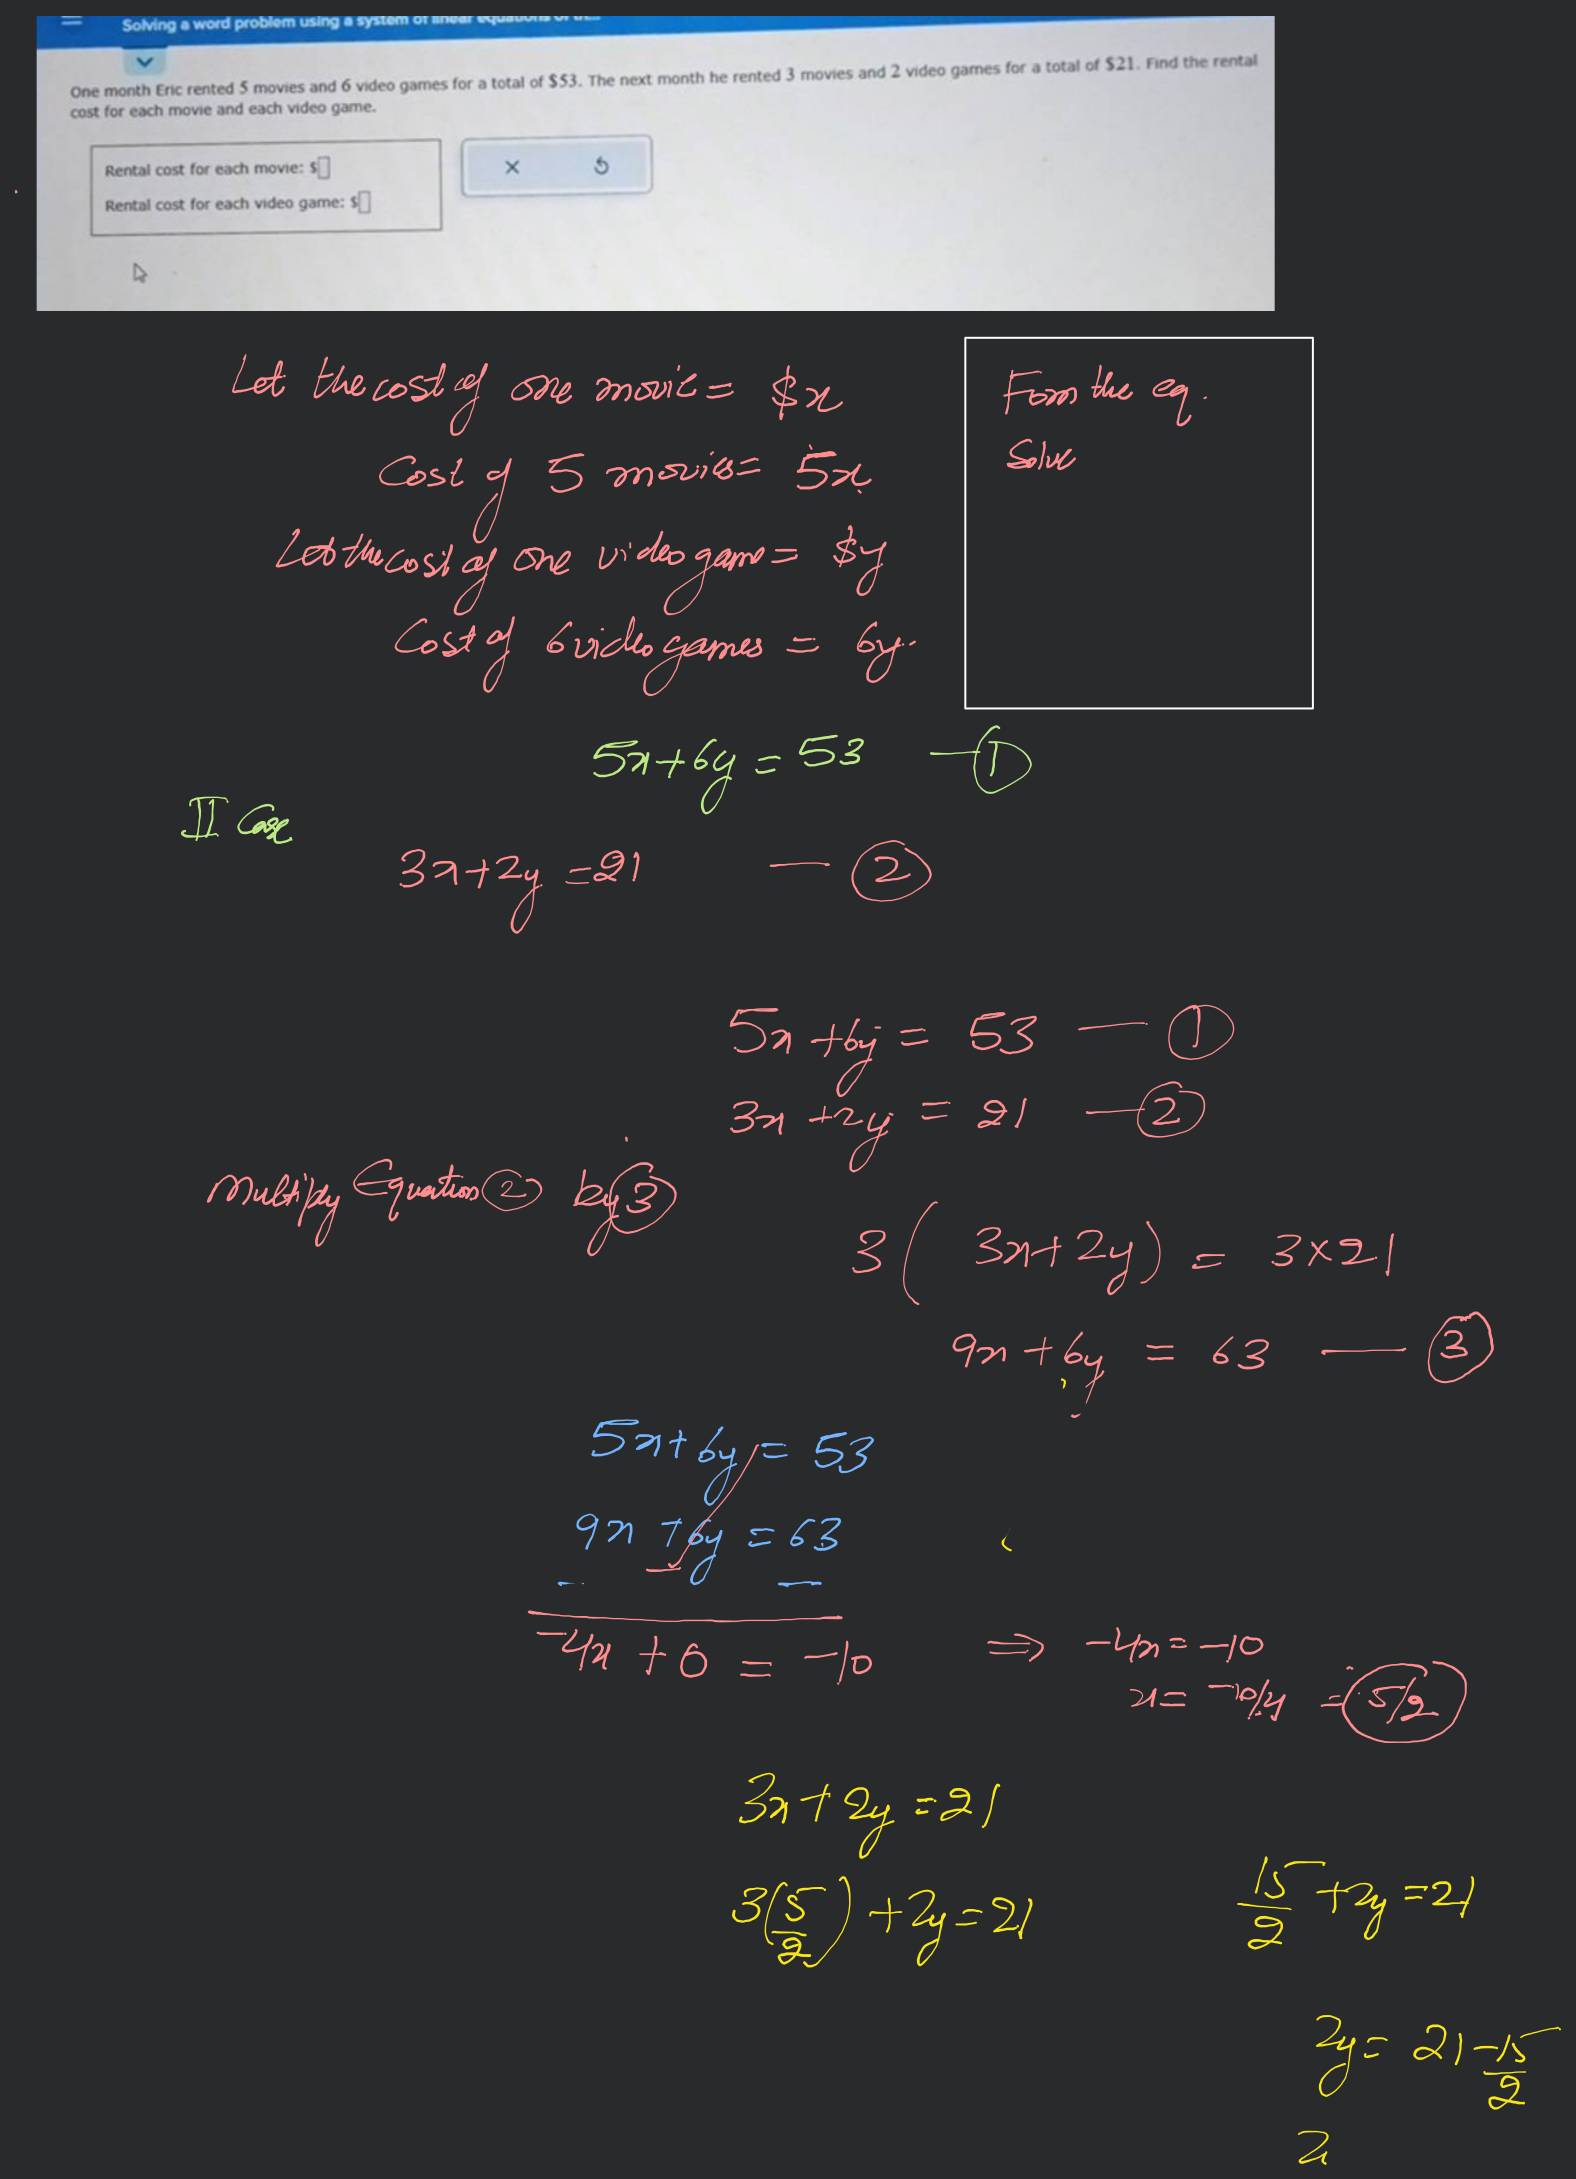 Solving a word problem using a system of linear equations of th...
One month Eric rented 5 movies and 6 video games for a total of $53. The next month he rented 3 movies and 2 video games for a total of $21. Find the rental
cost for each movie and each video game.
Rental cost for each movie: $
Rental cost for each video game: $
Let the cost of one movie = $x
Cost of 5 movies = 5x
Let the cost of one video game = $y
Cost of 6 video games = 6y.
Form the eq.
Solve
5x+6y = 53 — 1
II Case
3x+2y = 21 — 2
5x+6y = 53 — 1
3x+2y = 21 — 2
Multiply Equation 2 by 3
3(3x+2y) = 3×21
9x+6y = 63 — 3
5x+6y = 53
9x+6y = 63
- - -
-4x+0 = -10 ⇒ -4x = -10
x = -10/4 = 5/2
3x+2y = 21
3(5/2)+2y = 21
15/2+2y = 21
2y = 21-15/2